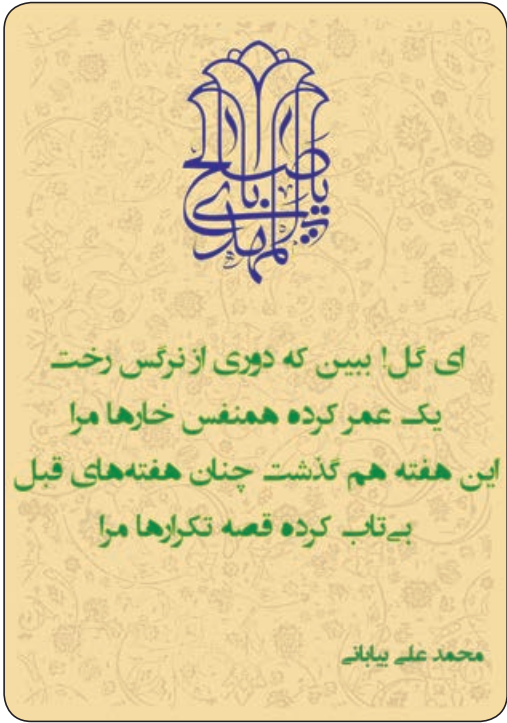 یا اباصالح المهدی
ای گل! ببین که دوری از نرگس رخت
یک عمر کرده همنفس خارها مرا
این هفته هم گذشت چنان هفته‌های قبل
بی‌تاب کرده قصه تکرارها مرا
محمد علی بیابانی